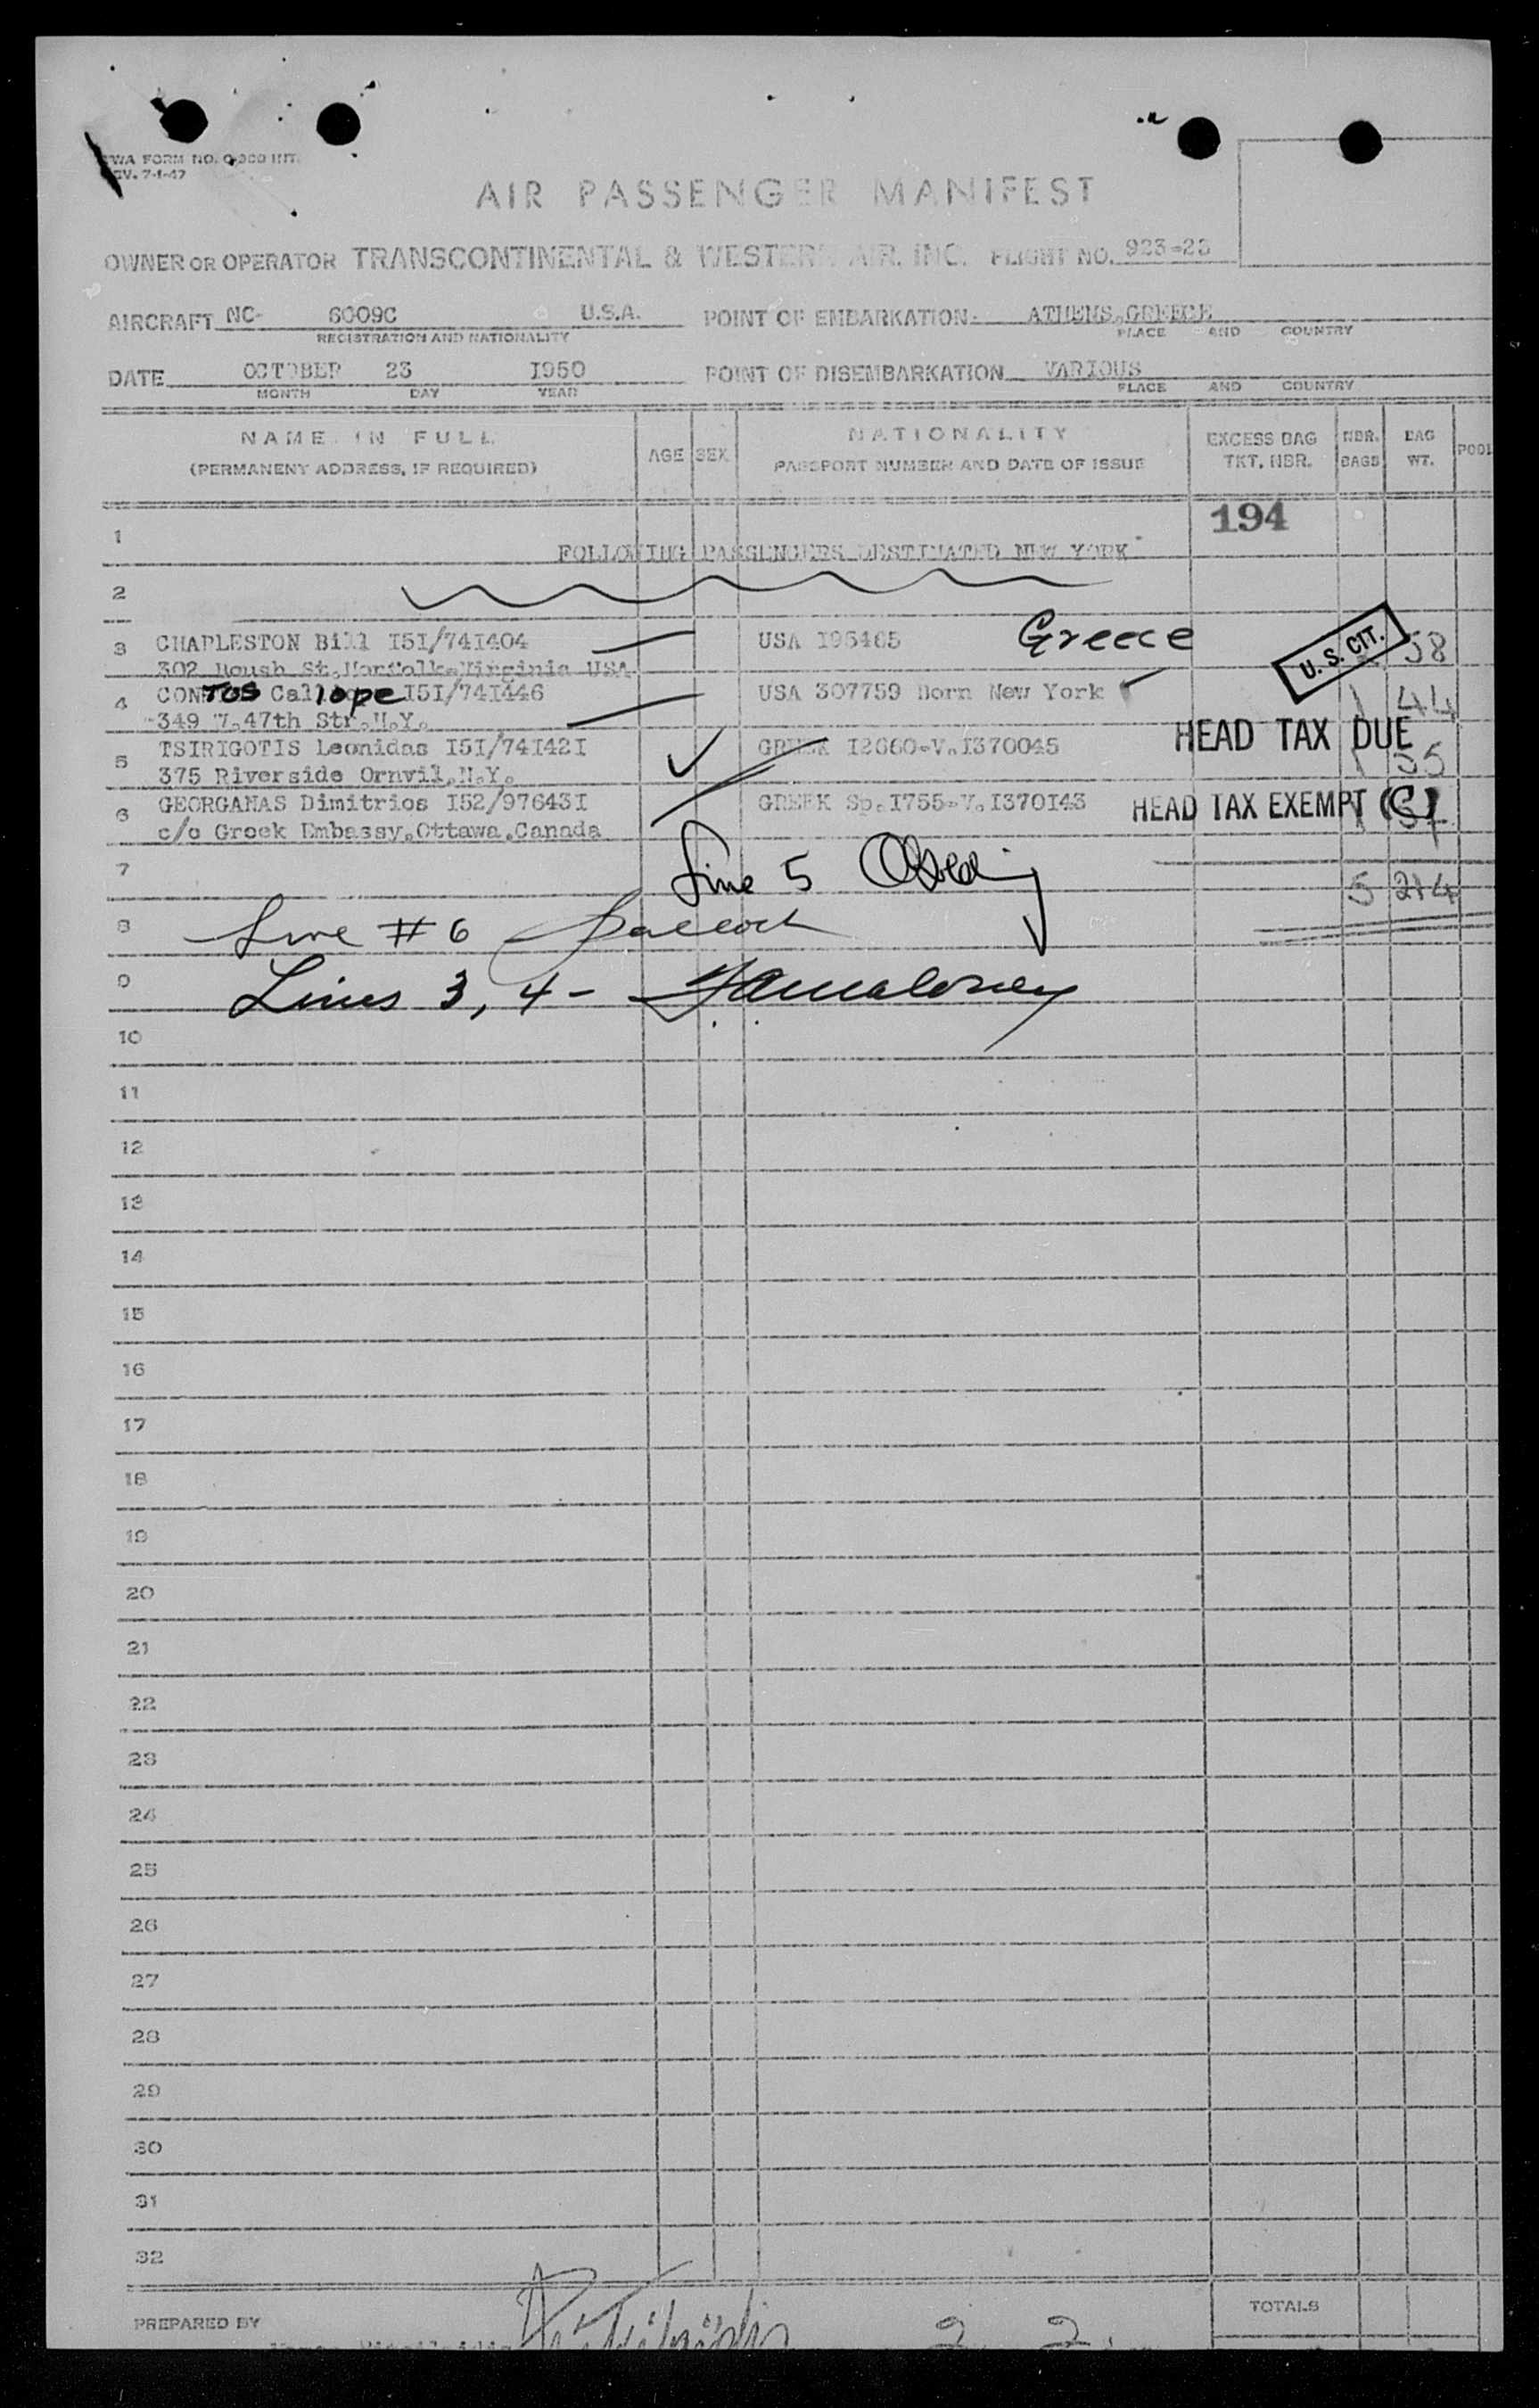 TWA FORM NO. O-300 INT.
REV. 7-1-47
AIR PASSENGER MANIFEST
OWNER OR OPERATOR TRANSCONTINENTAL & WESTERN AIR, INC. FLIGHT NO. 923-23
AIRCRAFT NC- 6009C U.S.A. POINT OF EMBARKATION ATHENS, GREECE
REGISTRATION AND NATIONALITY PLACE AND COUNTRY
DATE OCTOBER 23 I950 POINT OF DISEMBARKATION VARIOUS
MONTH DAY YEAR PLACE AND COUNTRY
NAME IN FULL AGE SEX NATIONALITY EXCESS BAG NBR. BAG
(PERMANENT ADDRESS, IF REQUIRED) PASSPORT NUMBER AND DATE OF ISSUE TKT. NBR. BAGS WT.
194
1 FOLLOWING PASSENGERS DESTINATED NEW YORK
2
3 CHARLESTON Bill I5I/74I404 USA I95465 Greece U.S. CIT. 58
302 St. Norfolk-Virginia USA
4 CONTOS Calliope I5I/74I446 USA 307759 Born New York 1 44
349 W.47th Str.N.Y.
5 TSIRIGOTIS Leonidas I5I/74I42I GREEK I2660-V.I370045 HEAD TAX DUE 1 55
375 Riverside Ornvil.N.Y.
6 GEORGANAS Dimitrios I52/97643I GREEK Sp.I755-V.I370I43 HEAD TAX EXEMPT
c/o Greek Embassy,Ottawa.Canada
7 Line 5 5 214
8 Line #6
9 Lines 3, 4 -
10
11
12
13
14
15
16
17
18
19
20
21
22
23
24
25
26
27
28
29
30
31
32
PREPARED BY 2 2 TOTALS